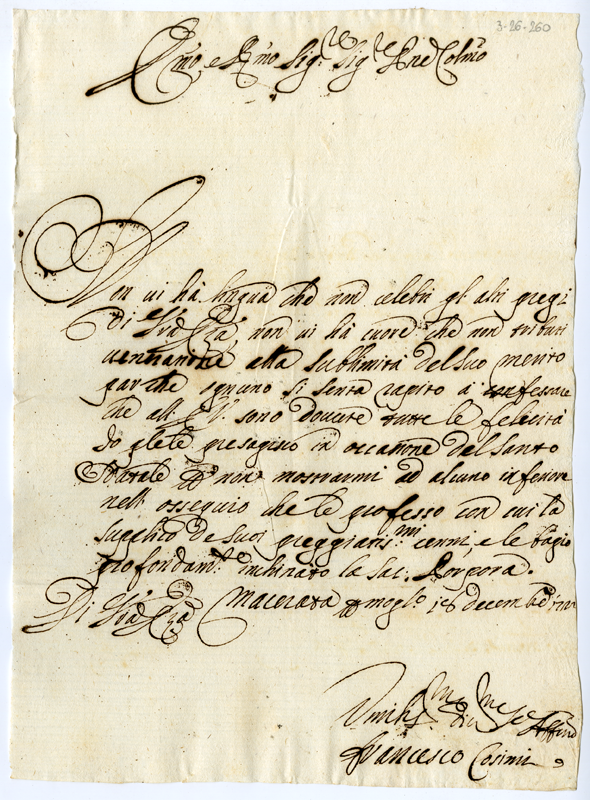 3-26-260
Em̃o, e R.mo Sig.re Sig.re P͂ne Colmo
Non ui há lingua che non celebri gl' alti pregi
di V͂ra Em͂za, non ui há cuore che non tributi
uenerazione alla sublimità del suo merito
par che ognuno si senta rapito à confessare
che all' E.V. sono douute tutte le felicità
Io glele presagisco in occasione del Santo
Natale p non mostrarmi ad alcuno inferiore
nell' ossequio che le professo con cui la
supplico de suoi preggiatis.mi cenni, e le bagio
profondam.te inchinato la Sac. Porpora.
Di V͂ra Em͂za Macerata p mogl.o 18 decemb.e
Vmilis.mo Diu.mo Se
Francesco Cosimi